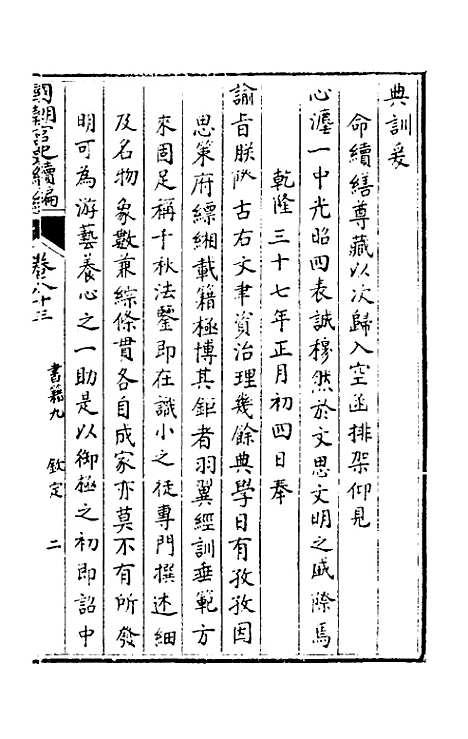 典訓爰
命續繕尊藏以次歸入空函排架仰見
心瀍一中光昭四表誠穆然於文思文明之盛際焉
乾隆三十七年正月初四日奉
諭旨朕稽古右文聿資治理幾餘典學日有孜孜因
思策府縹緗載籍極博其鉅者羽翼經訓垂範方
來固足稱千秋法鑒即在識小之徒專門撰述細
及名物象數兼綜條貫各自成家亦莫不有所發
明可為游藝養心之一助是以御極之初即詔中
國朝宮史續編
卷八十三
書籍九
欽定
二